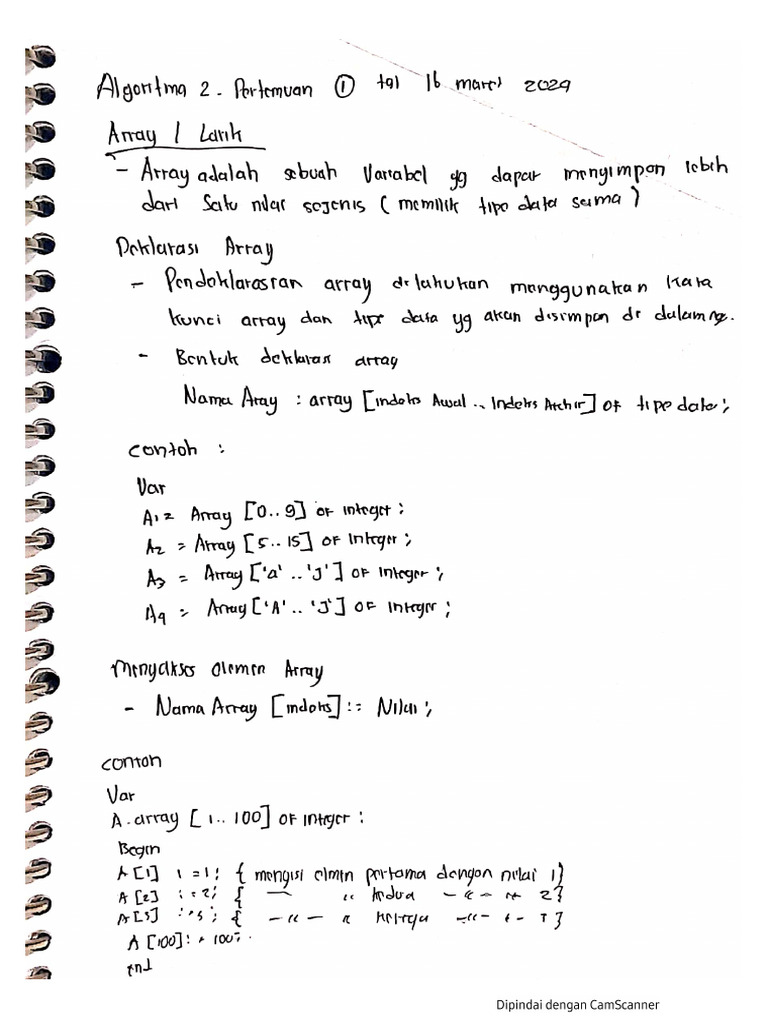 Algoritma 2. Pertemuan ① tgl 16 maret 2024
Array / Larik
- Array adalah sebuah Variabel yg dapat menyimpan lebih
dari Satu nilai sejenis (memilik tipe data sama)
Deklarasi Array
- Pendeklarasian array dilakukan menggunakan kata
kunci array dan tipe data yg akan disimpan di dalamnya.
- Bentuk deklarasi array
Nama Aray : array [indeks Awal .. Indeks Akhir] of tipe data;
contoh :
Var
A1 = Array [0..9] of integer;
A2 = Array [5..15] of integer;
A3 = Array ['a'..'J'] of integer;
A4 = Array ['A'..'J'] of integer;
Menyakses elemen Array
- Nama Array [indeks] := Nilai;
contoh
Var
A.array [1..100] of integer;
Begin
A [1] := 1; { mengisi elmen pertama dengan nilai 1}
A [2] := 2; { — " kedua — " — " 2}
A [3] := 3; { — " — " ketiga — " — " 3}
A [100] := 100;
End
Dipindai dengan CamScanner